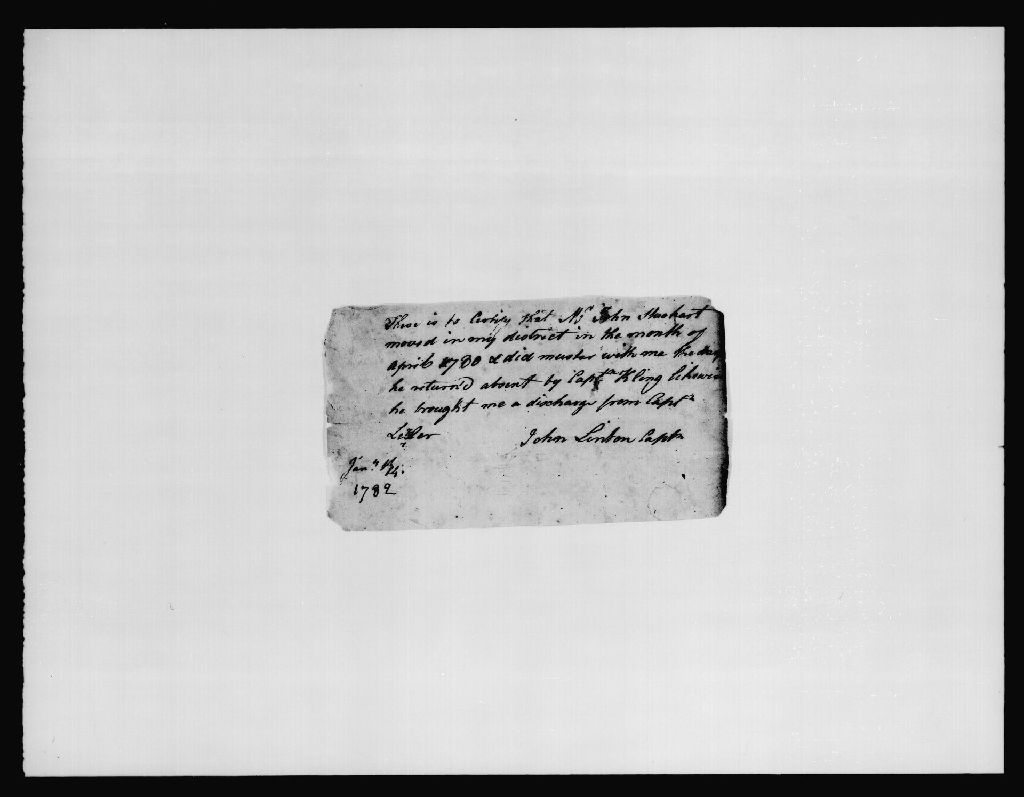 These is to Certify that Mr John
moved in my district in the month of
april 1780 & did muster with me the day
he returnd absent by Captn Kling Likewise
he brought me a discharge from Captn
John Linton Captn
Jany
1782